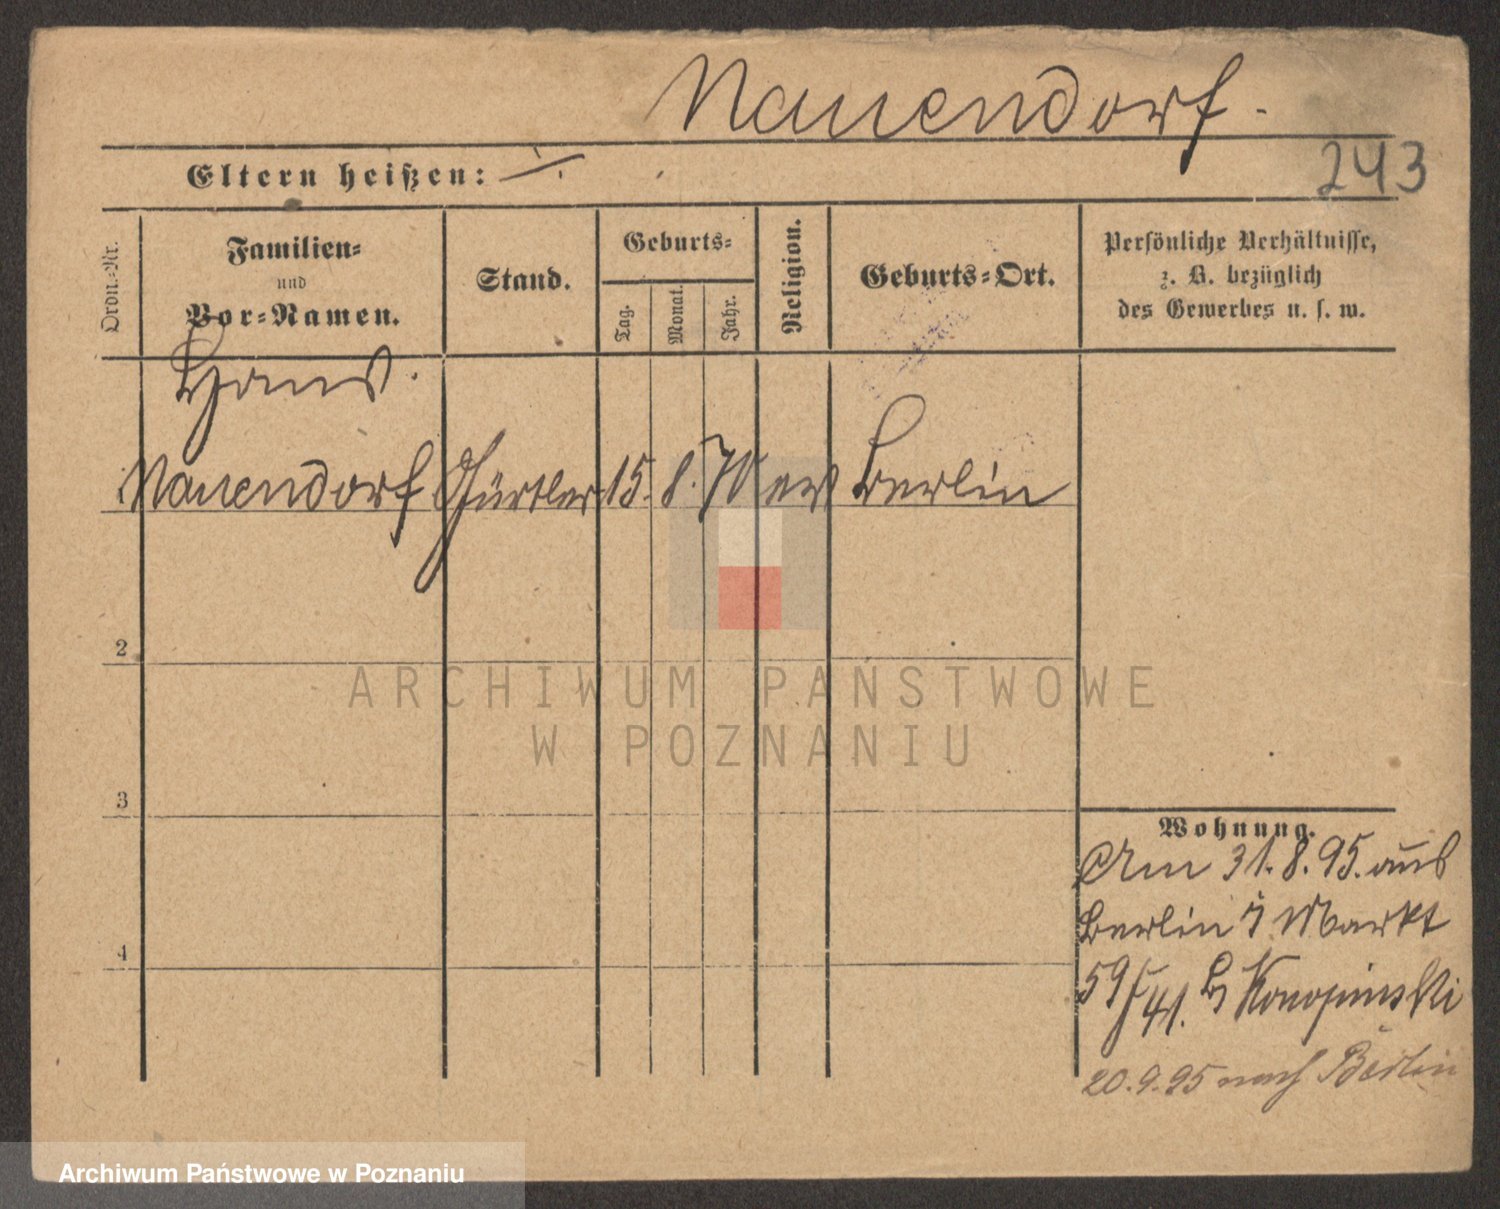 Nauendorf.
243
Eltern heißen: ./.
Ordn.-Nr.
Familien-
und
Vor-Namen.
Stand.
Geburts-
Tag.
Monat.
Jahr.
Religion.
Geburts-Ort.
Persönliche Verhältnisse,
z. B. bezüglich
des Gewerbes u. s. w.
Hans
Nauendorf Gürtler 15. 8. 70 ev Berlin
2
3
4
ARCHIWUM PAŃSTWOWE
W POZNANIU
Wohnung.
Am 31.8.95. aus
Berlin Markt
59/41. b Konopinski
20.9.95 nach Berlin
Archiwum Państwowe w Poznaniu